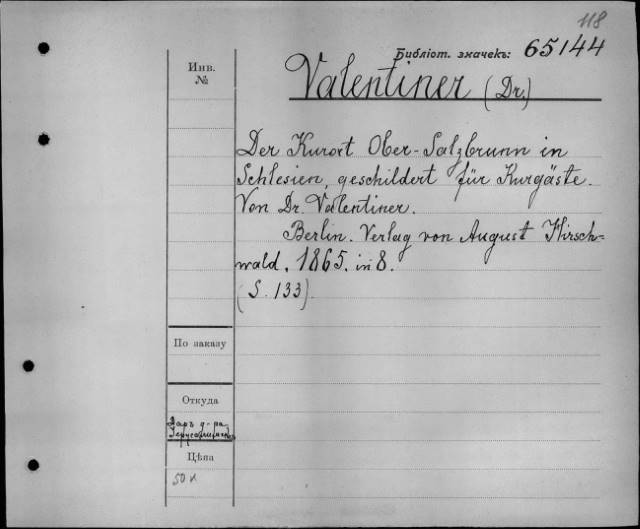 118
Библіот. значекъ: 65144
Инв.
№
Valentiner (Dr.)
Der Kurort Ober-Salzbrunn in
Schlesien, geschildert für Kurgäste.
Von Dr. Valentiner.
Berlin. Verlag von August Hirsch-
wald, 1865. in 8.
(S. 133).
По заказу
Откуда
Даръ д-ра
Цѣна
50 к